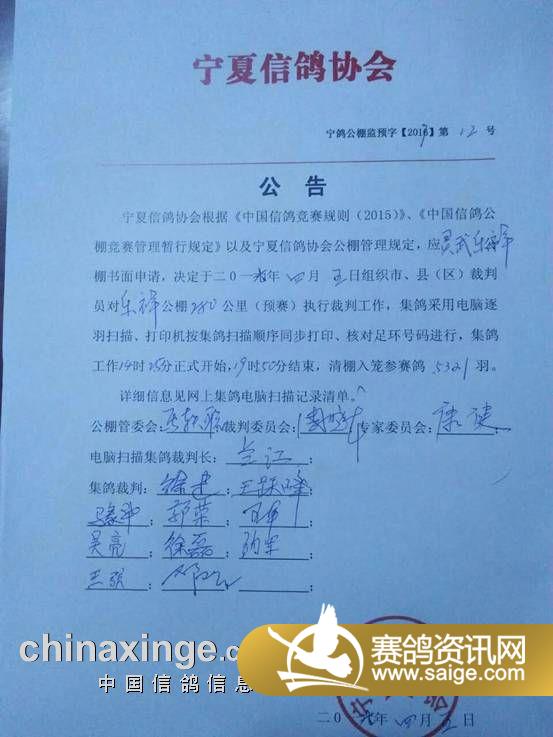 宁夏信鸽协会
宁鸽公棚监预字【201 】第 12 号
公 告
宁夏信鸽协会根据《中国信鸽竞赛规则（2015）》、《中国信鸽公
棚竞赛管理暂行规定》以及宁夏信鸽协会公棚管理规定，应灵武乐祥
棚书面申请，决定于二0一 年 四 月 五 日组织市、县（区）裁判
员对乐祥公棚 公里（预赛）执行裁判工作，集鸽采用电脑逐
羽扫描、打印机按集鸽扫描顺序同步打印、核对足环号码进行，集鸽
工作14时25分正式开始，19时50分结束，清棚入笼参赛鸽 5321 羽。
详细信息见网上集鸽电脑扫描记录清单。
公棚管委会： 裁判委员会： 专家委员会：康健；
电脑扫描集鸽裁判长：兰江；
集鸽裁判：徐建；王跃峰；
；郭荣； ；
吴亮；徐磊； ；
王强； ；
chinaxinge.c
中国信鸽信息
赛鸽资讯网
www.saige.com
二0一 年 四 月 五 日